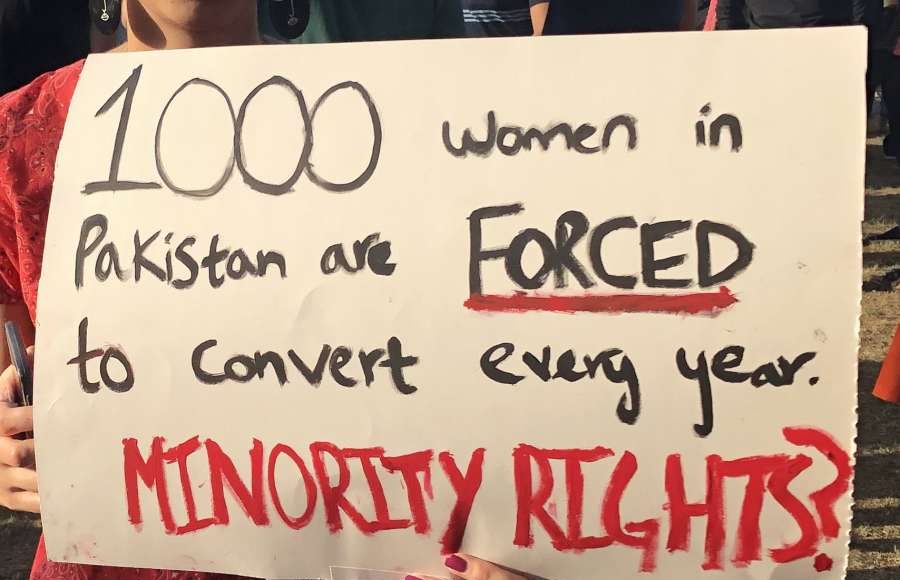 1000 women in
Pakistan are FORCED
to convert every year.
MINORITY RIGHTS?